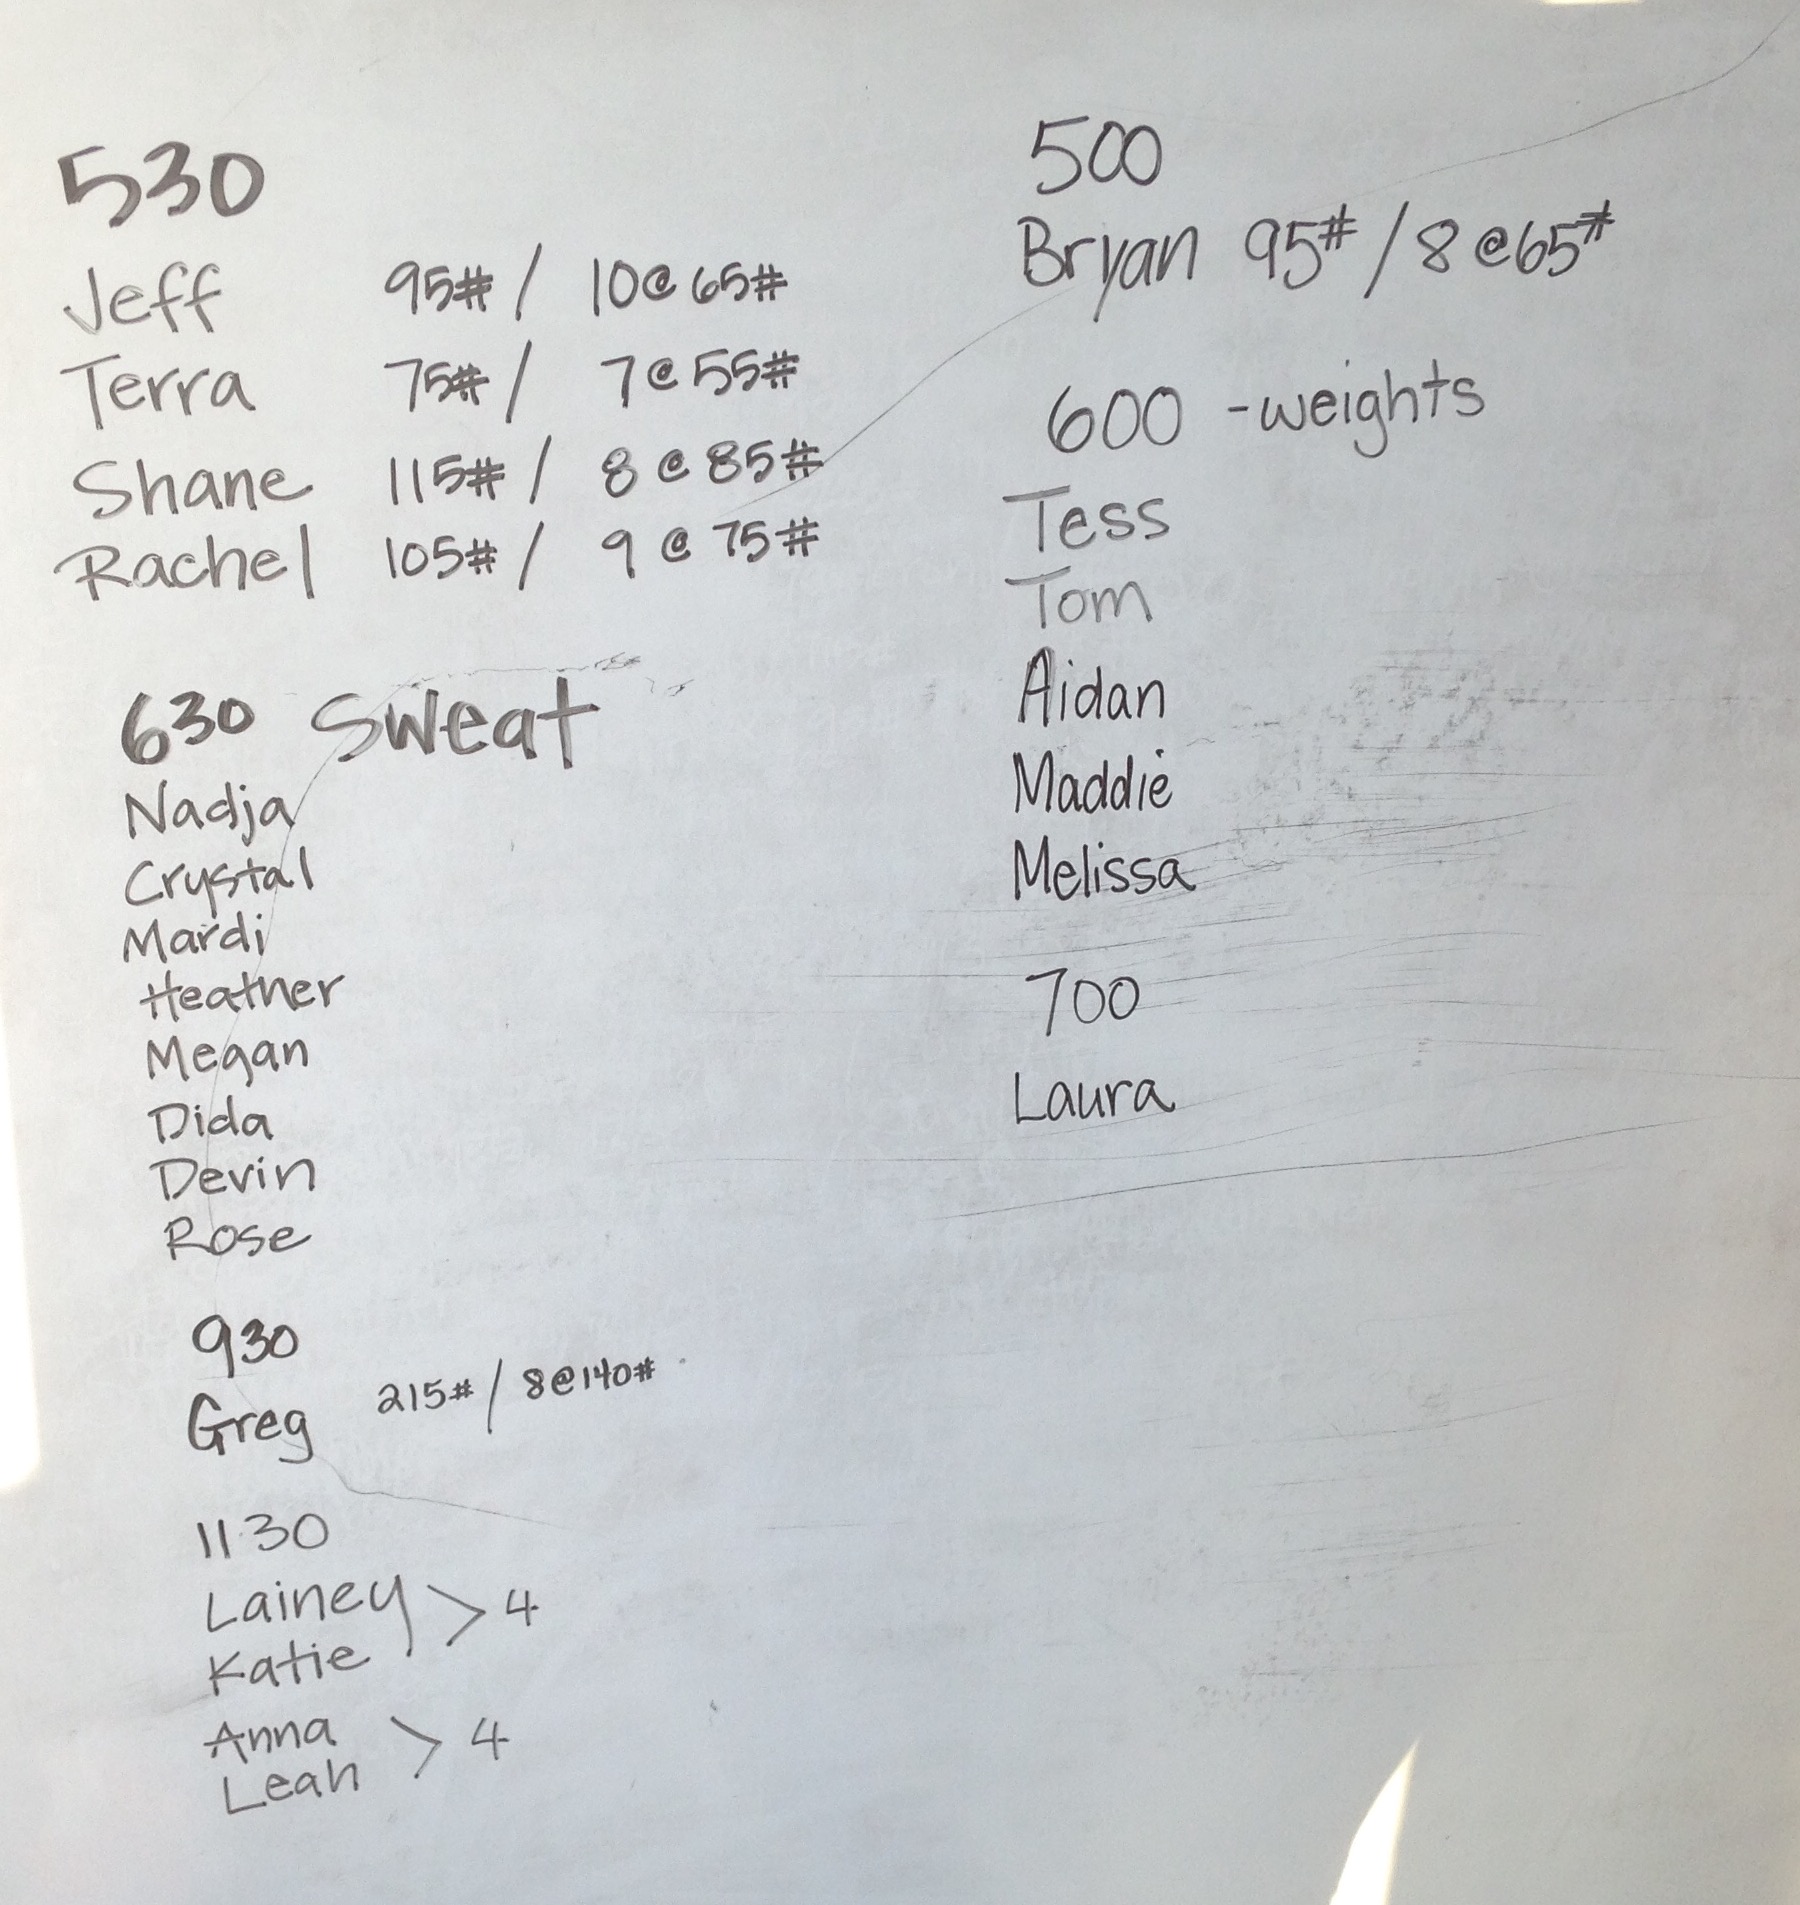 530
Jeff 95# / 10@65#
Terra 75# / 7@55#
Shane 115# / 8@85#
Rachel 105# / 9@75#
630 Sweat
Nadja
Crystal
Mardi
Heather
Megan
Dida
Devin
Rose
930
Greg 215# / 8@140#
1130
Lainey > 4
Katie
Anna > 4
Leah
500
Bryan 95# / 8@65#
600 -weights
Tess
Tom
Aidan
Maddie
Melissa
700
Laura